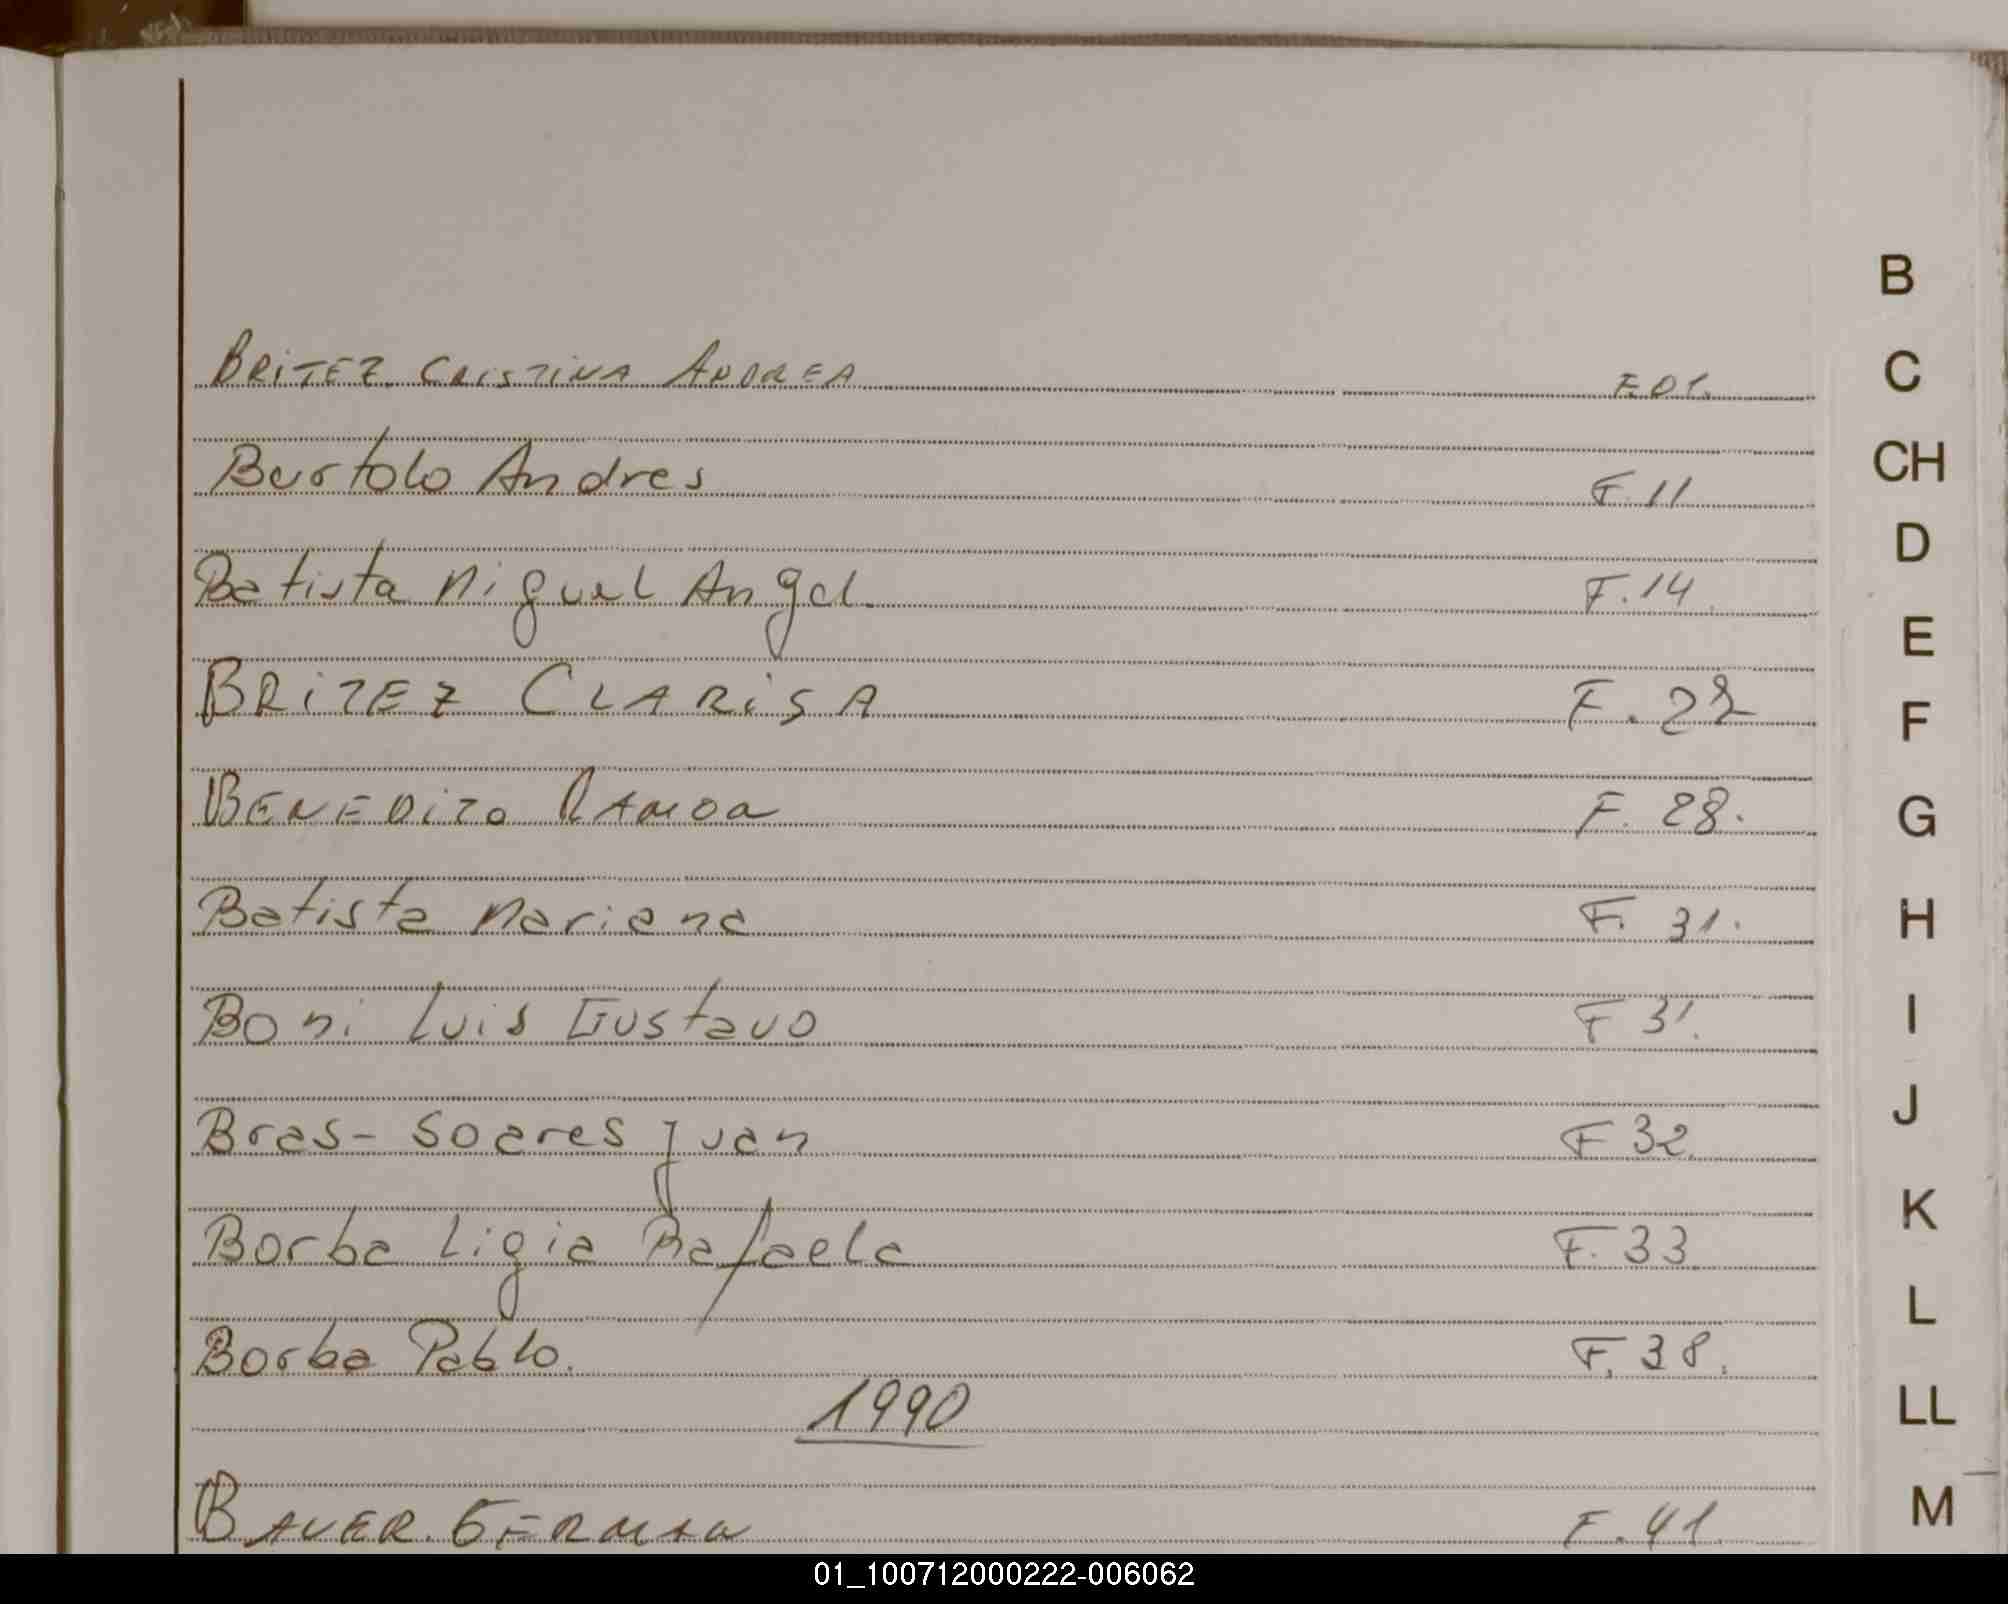 BRITEZ CRISTINA ANDREA F.01.
Bartolo Andres F.11
Batista Miguel Angel. F.14.
BRITEZ CLARISA F. 22
BENEDITO RAMON F. 28.
Batista Mariana F. 31.
Boni Luis Gustavo F 31.
Bras-Soares Juan F 32.
Borba Ligia Rafaela F. 33
Borba Pablo. F. 38.
1990
BAUER. GERMAN F. 41.
B
C
CH
D
E
F
G
H
I
J
K
L
LL
M
01_100712000222-006062